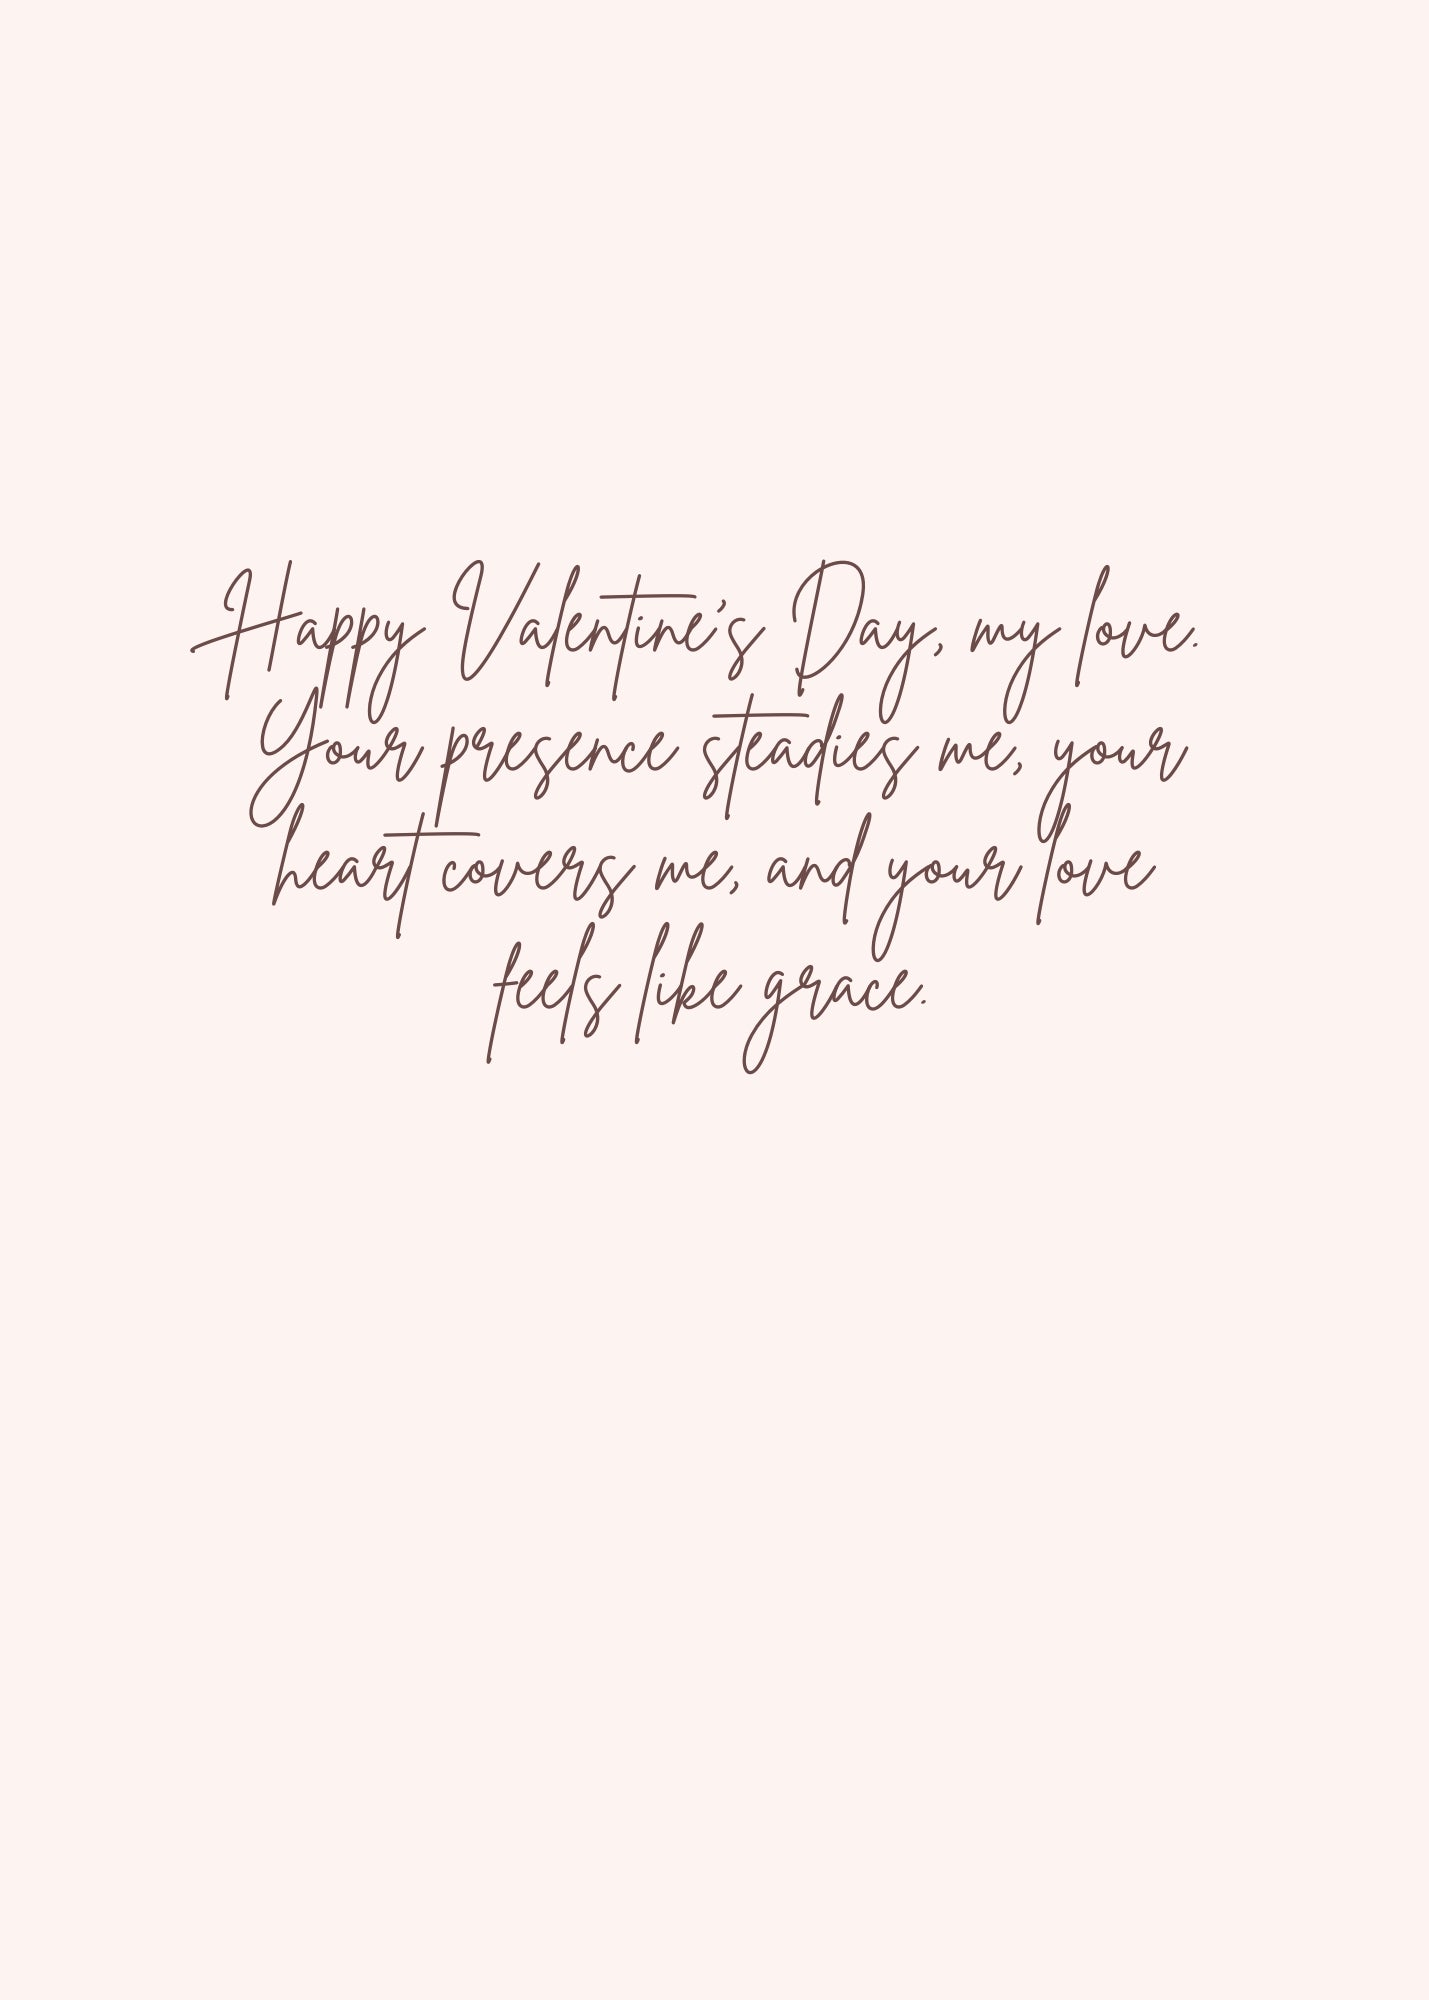 Happy Valentine's Day, my love.
Your presence steadies me, your
heart covers me, and your love
feels like grace.